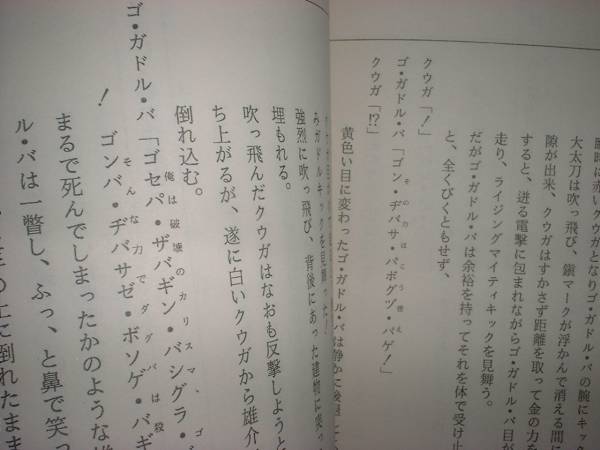 瞬時に赤いクウガとなりゴ・ガドル・バの腕にキック
大太刀は吹っ飛び、鎖マークが浮かんで消える間に
隙が出来、クウガはすかさず距離を取って金の力を
すると、迸る電撃に包まれながらゴ・ガドル・バ目が
走り、ライジングマイティキックを見舞う。
だがゴ・ガドル・バは余裕を持ってそれを体で受け止
と、全くびくともせず、
クウガ「!」
ゴ・ガドル・バ「ゴン・ヂバサ・パボグヅ・バゲ!」
その力はこう使え
クウガ「!?」
黄色い目に変わったゴ・ガドル・バは静かに後退し
みガドルキックを見舞った!
強烈に吹っ飛び、背後にあった建物に
埋もれる。
吹っ飛んだクウガはなおも反撃しようと
ち上がるが、遂に白いクウガから雄介
倒れ込む。
ゴ・ガドル・バ「ゴセパ・ザバギン・バシグラ・ゴ
俺は破壊のカリスマ、ゴ
! ゴンバ・ヂバサゼ・ボソゲ・バギ
そんな力でダグバは殺
まるで死んでしまったかのような
ル・バは一瞥し、ふっ、と鼻で笑っ
上に倒れたまま